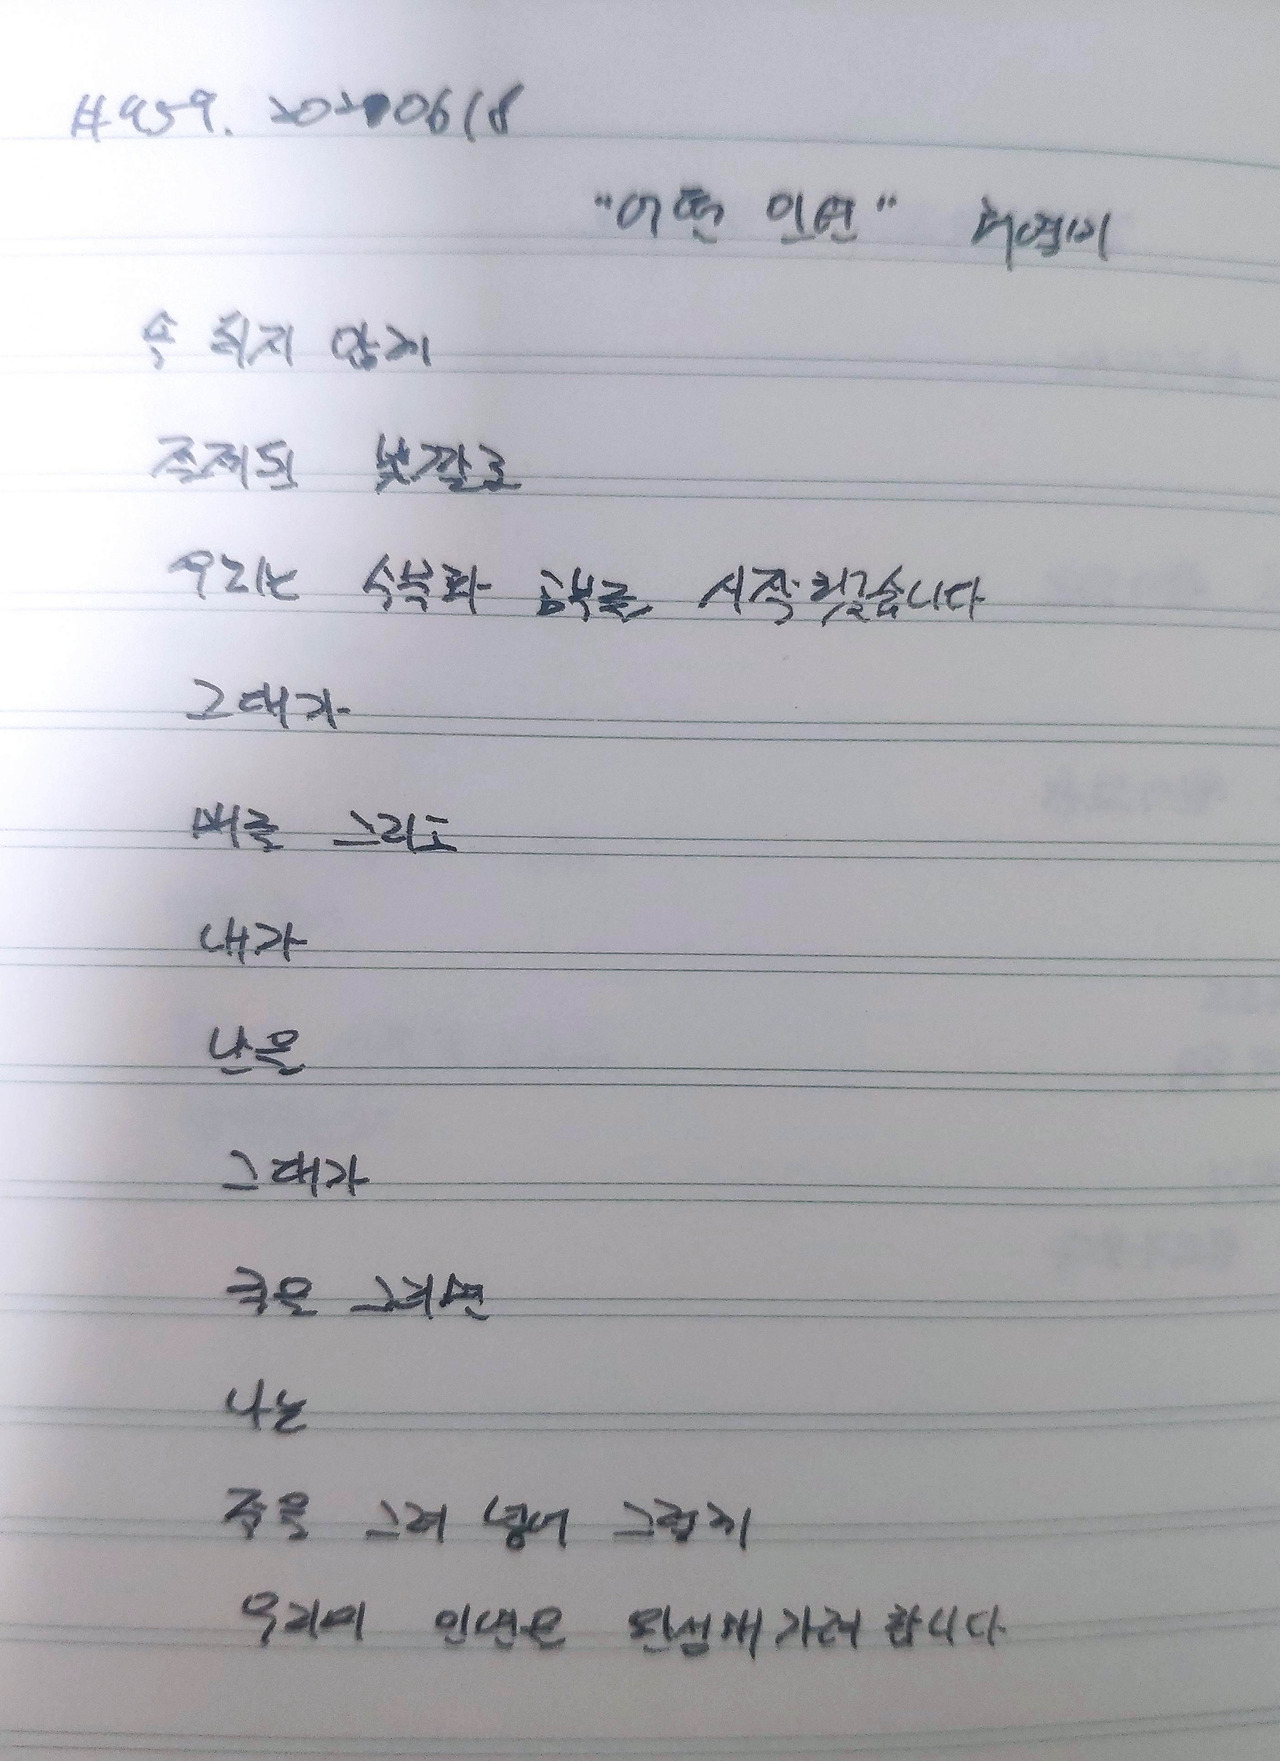 #959. 20210618
"어떤 인연" 허영미
속 되지 않게
절제된 빛깔로
우리는 수묵화 공부를 시작하겠습니다
그대가
매를 그리고
내가
난을
그대가
국을 그리면
나는
죽을 그려 넣어 그렇게
우리의 인연은 완성해 가려 합니다